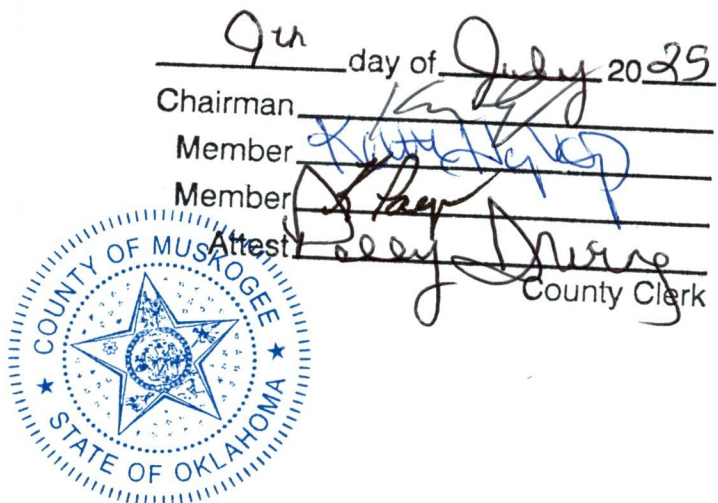 9th day of July 2025
Chairman
Member
Member
Attest Polly Irving
County Clerk
COUNTY OF MUSKOGEE
STATE OF OKLAHOMA